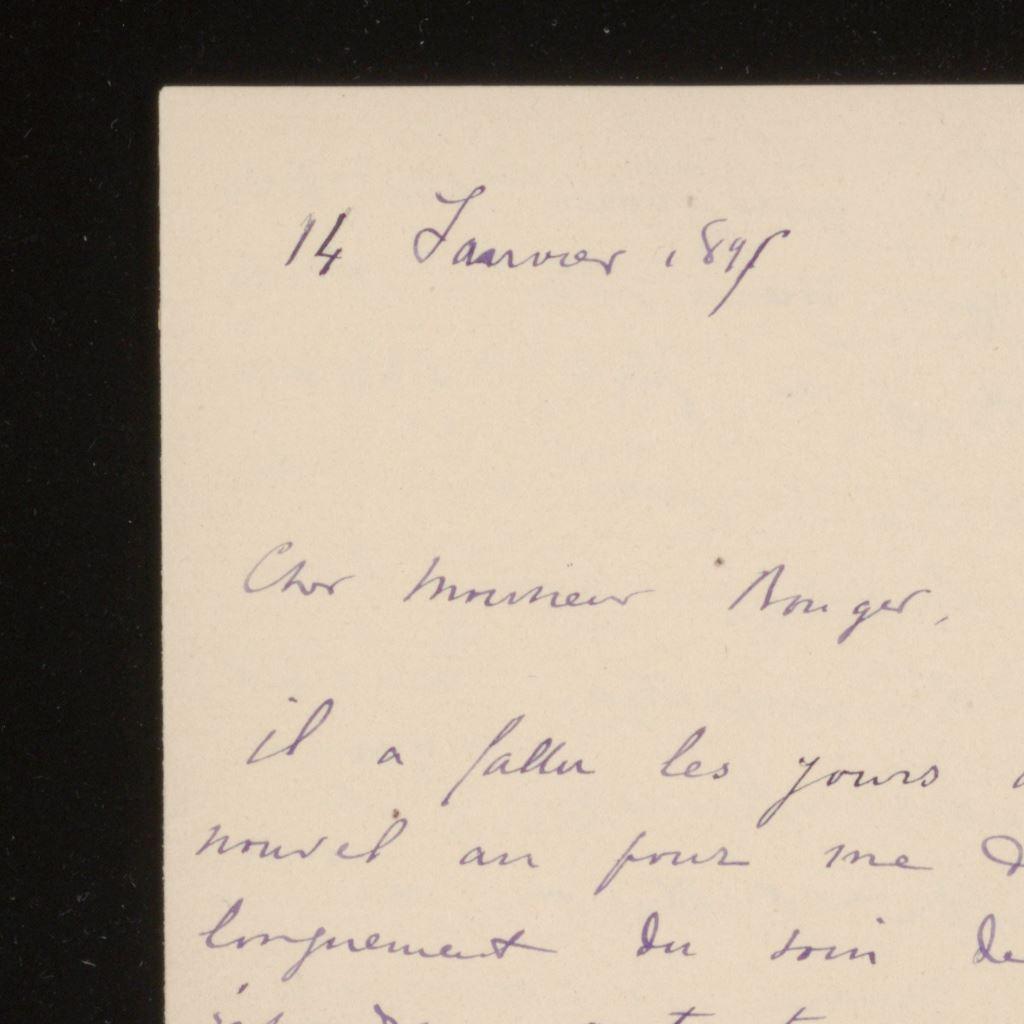 14 Janvier 1895
Cher Monsieur Rouger,
il a fallu les jours
nouvel an pour me
longuement du soin de